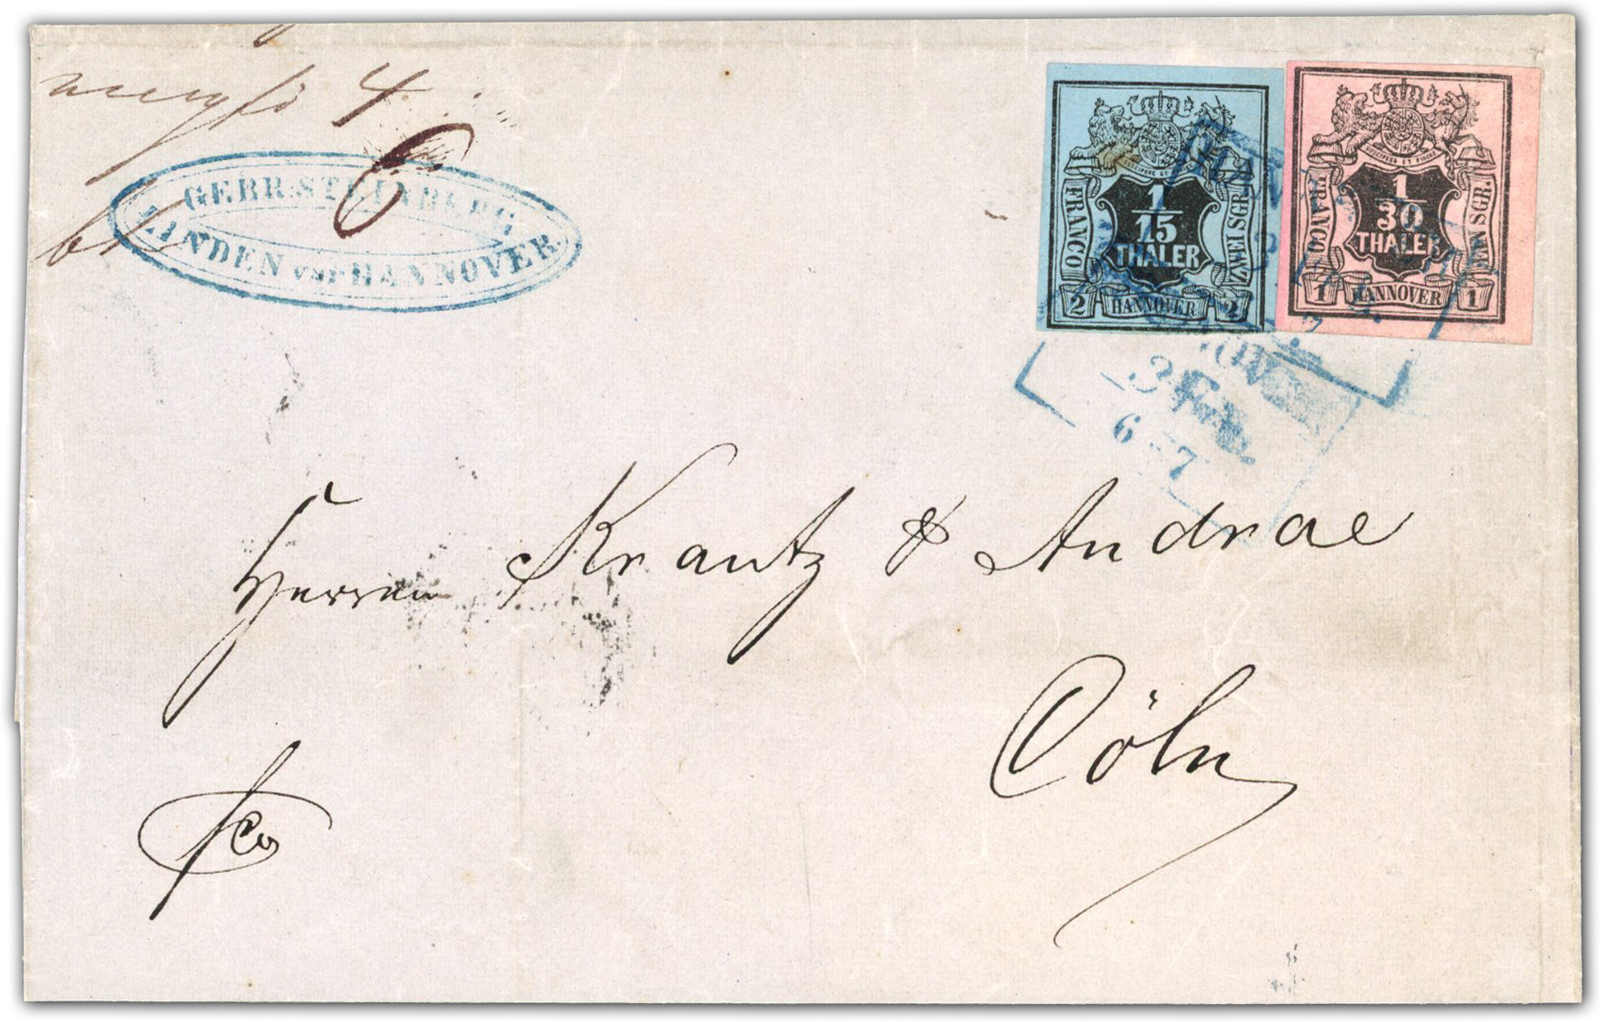 4
6
GEBR: STEINBERG,
LINDEN vor HANNOVER
1
15
THALER
FRANCO
ZWEI SGR.
2 HANNOVER 2
1
30
THALER
FRANCO
EIN SGR.
1 HANNOVER 1
6 - 7
Herren Krantz & Andrae
Cöln
fco